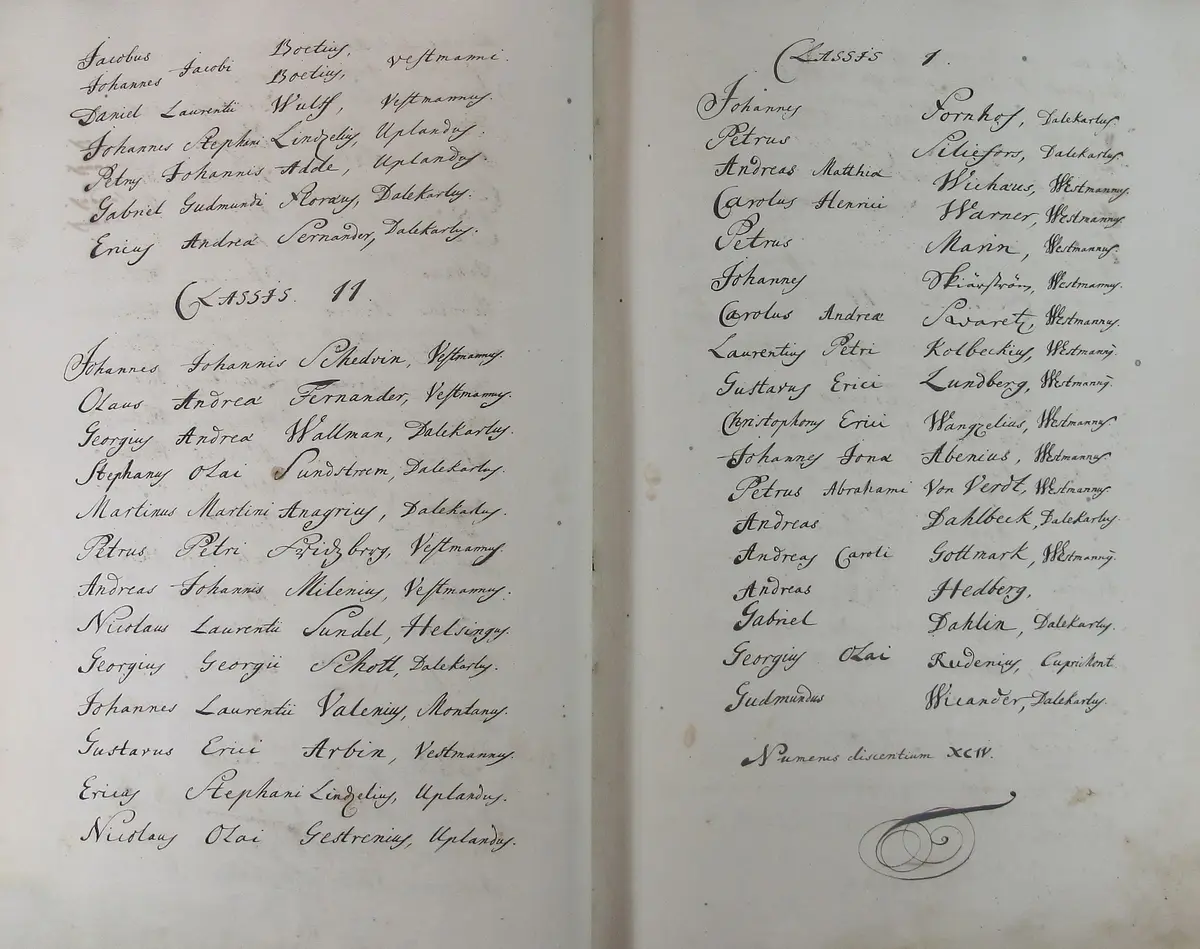 Jacobus Boetius,
Johannes Jacobi Boetius, Vestmanni.
Daniel Laurentii Wulff, Vestmannus.
Johannes Stephani Lindzelius, Uplandus.
Petrus Johannis Adde, Uplandus.
Gabriel Gudmundi Floræus, Dalekarlus.
Ericus Andreæ Fernander, Dalekarlus.
CLASSIS. 11.
Johannes Johannis Schedvin, Vestmannus.
Olaus Andreæ Fernander, Vestmannus.
Georgius Andreæ Wallman, Dalekarlus.
Stephanus Olai Sundstroem, Dalekarlus.
Martinus Martini Anagrius, Dalekarlus.
Petrus Petri Fridzberg, Vestmannus.
Andreas Johannis Milenius, Vestmannus.
Nicolaus Laurentii Sundel, Helsingus.
Georgius Georgii Schott, Dalekarlus.
Johannes Laurentii Valenius, Montanus.
Gustavus Erici Arbin, Vestmannus.
Ericus Stephani Lindzelius, Uplandus.
Nicolaus Olai Gestrenius, Uplandus.
CLASSIS 1.
Johannes Fornhos, Dalekarlus.
Petrus Siliefors, Dalekarlus.
Andreas Matthiæ Wichaus, Westmannus.
Carolus Henrici Warner, Westmannus.
Petrus Marin, Westmannus.
Johannes Skiärström, Westmannus.
Carolus Andreæ Svaretz, Westmannus.
Laurentius Petri Kolbeckius, Westmannꝰ.
Gustavus Erici Lundberg, Westmannꝰ.
Christophorus Erici Wangzelius, Westmannus.
Johannes Jonæ Abenius, Westmannus.
Petrus Abrahami Von Verdt, Westmannus.
Andreas Dahlbeck, Dalekarlus.
Andreas Caroli Gottmark, Westmannꝰ.
Andreas Hedberg,
Gabriel Dahlin, Dalekarlus.
Georgius Olai Rudenius, CupriMont
Gudmundus Wicander, Dalekarlus.
Numerus discentium XCIV.